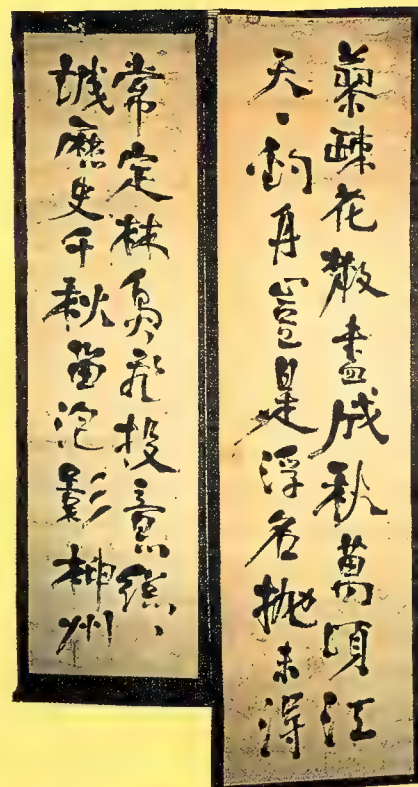 疎花散盡成秋萬頃江
天一釣舟豈是浮名拋未得
常定林投意
誠歷史千秋留泡影神州